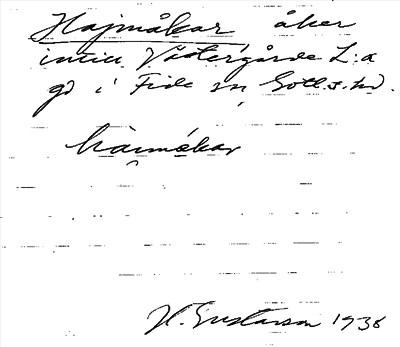 Hajmåkar åker
intill Västergårde L:a
gd i Fide sn, Gotl.s.hd.
H. Gustavson 1938